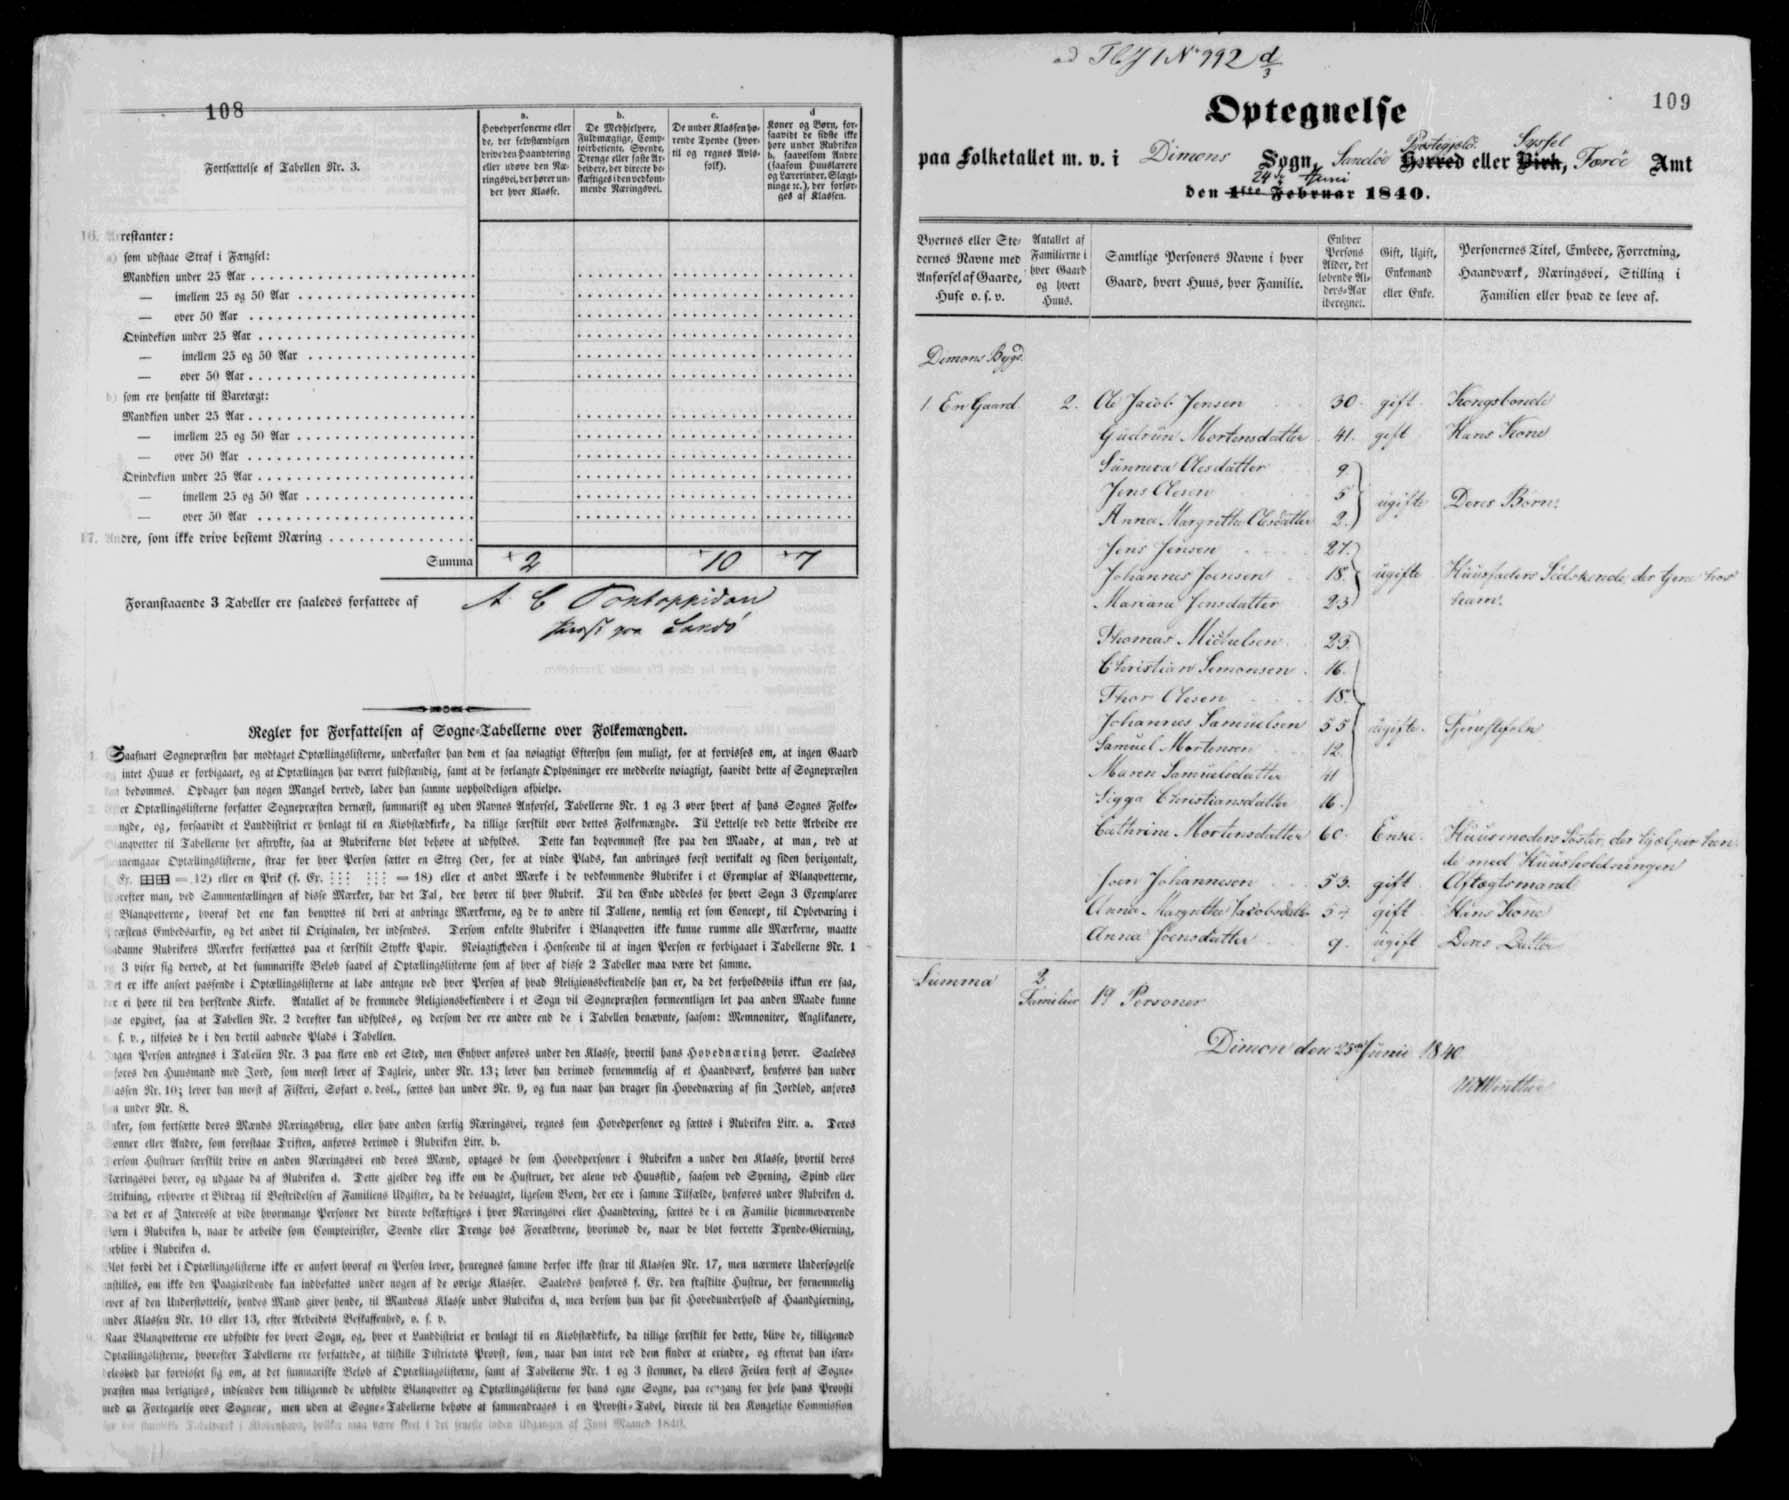 108
Fortsættelse af Tabellen Nr. 3.
a.
Hovedpersonerne eller
de, der selvstændigen
drive den Haandtering
eller udøve den Næ-
ringsvei, der hører un-
der hver Klasse.
b.
De Medhjelpere,
Fuldmægtige, Comp-
toirbetjente, Svende,
Drenge eller faste Ar-
beidere, der directe be-
skæftiges i den vedkom-
mende Næringsvei.
c.
De under Klassen hø-
rende Tyende (hvor-
til og regnes Avls-
folk).
d
Koner og Børn, for-
saavidt de sidste ikke
høre under Rubriken
b. saavelsom Andre
(saasom Huuslærere
og Lærerinder, Slægt-
ninge ꝛc.), der forsør-
ges af Klassen.
16. Arrestanter:
a) som udstaae Straf i Fængsel:
Mandkiøn under 25 Aar
— imellem 25 og 50 Aar
— over 50 Aar
Qvindekiøn under 25 Aar
— imellem 25 og 50 Aar
— over 50 Aar
b) som ere hensatte til Varetægt:
Mandkiøn under 25 Aar
— imellem 25 og 50 Aar
— over 50 Aar
Qvindekiøn under 25 Aar
— imellem 25 og 50 Aar
— over 50 Aar
17. Andre, som ikke drive bestemt Næring
Summa +2 +10 +7
Foranstaaende 3 Tabeller ere saaledes forfattede af A C Pontoppidan
Præst paa Sandø
Regler for Forfattelsen af Sogne-Tabellerne over Folkemængden.
1. Saasnart Sognepræsten har modtaget Optællingslisterne, underkaster han dem et saa nøiagtigt Eftersyn som muligt, for at forvisses om, at ingen Gaard
intet Huus er forbigaaet, og at Optællingen har været fuldstændig, samt at de forlangte Oplysninger ere meddeelte nøiagtigt, saavidt dette af Sognepræsten
kan bedømmes. Opdager han nogen Mangel derved, lader han samme uopholdeligen afhielpe.
2. Efter Optællingslisterne forfatter Sognepræsten dernæst, summarisk og uden Navnes Anførsel, Tabellerne Nr. 1 og 3 over hvert af hans Sognes Folke-
mængde, og, forsaavidt et Landdistrict er henlagt til en Kiøbstædkirke, da tillige særskilt over dettes Folkemængde. Til Lettelse ved dette Arbeide ere
Blanqvetter til Tabellerne her aftrykte, saa at Rubrikerne blot behøve at udfyldes. Dette kan beqvemmest skee paa den Maade, at man, ved at
giennemgaae Optællingslisterne, strax for hver Person sætter en Streg (der, for at vinde Plads, kan anbringes først vertikalt og siden horizontalt,
f. Ex. = 12) eller en Prik (f. Ex. = 18) eller et andet Mærke i de vedkommende Rubriker i et Exemplar af Blanqvetterne,
hvorefter man, ved Sammentællingen af disse Mærker, har det Tal, der hører til hver Rubrik. Til den Ende uddeles for hvert Sogn 3 Exemplarer
af Blanqvetterne, hvoraf det ene kan benyttes til deri at anbringe Mærkerne, og de to andre til Tallene, nemlig eet som Concept, til Opbevaring i
Præstens Embedsarkiv, og det andet til Originalen, der indsendes. Dersom enkelte Rubriker i Blanqvetten ikke kunne rumme alle Mærkerne, maatte
saadanne Rubrikers Mærker fortsættes paa et særskilt Stykke Papir. Nøiagtigheden i Henseende til at ingen Person er forbigaaet i Tabellerne Nr. 1
og 3 viser sig derved, at det summariske Beløb saavel af Optællingslisterne som af hver af disse 2 Tabeller maa være det samme.
3. Det er ikke anseet passende i Optællingslisterne at lade antegne ved hver Person af hvad Religionsbekiendelse han er, da det forholdsviis ikkun ere faa,
der ei høre til den herskende Kirke. Antallet af de fremmede Religionsbekiendere i et Sogn vil Sognepræsten formeentligen let paa anden Maade kunne
faae opgivet, saa at Tabellen Nr. 2 derefter kan udfyldes, og dersom der ere andre end de i Tabellen benævnte, saasom: Memnoniter, Anglikanere,
o. s. v., tilføies de i den dertil aabnede Plads i Tabellen.
4. Ingen Person antegnes i Tabellen Nr. 3 paa flere end eet Sted, men Enhver anføres under den Klasse, hvortil hans Hovednæring hører. Saaledes
anføres den Huusmand med Jord, som meest lever af Dagleie, under Nr. 13; lever han derimod fornemmelig af et Haandværk, henføres han under
Klassen Nr. 10; lever han meest af Fiskeri, Søfart o. desl., sættes han under Nr. 9, og kun naar han drager sin Hovednæring af sin Jordlod, anføres
han under Nr. 8.
5. Enker, som fortsætte deres Mænds Næringsbrug, eller have anden særlig Næringsvei, regnes som Hovedpersoner og sættes i Rubriken Litr. a. Deres
Sønner eller Andre, som forestaae Driften, anføres derimod i Rubriken Litr. b.
6. Dersom Hustruer særskilt drive en anden Næringsvei end deres Mænd, optages de som Hovedpersoner i Rubriken a under den Klasse, hvortil deres
Næringsvei hører, og udgaae da af Rubriken d. Dette gjelder dog ikke om de Hustruer, der alene ved Huusflid, saasom ved Syening, Spind eller
Strikning, erhverve et Bidrag til Bestridelsen af Familiens Udgifter, da de desuagtet, ligesom Børn, der ere i samme Tilfælde, henføres under Rubriken d.
7. Da det er af Interesse at vide hvormange Personer der directe beskæftiges i hver Næringsvei eller Haandtering, sættes de i en Familie hiemmeværende
Børn i Rubriken b, naar de arbeide som Comptoirister, Svende eller Drenge hos Forældrene, hvorimod de, naar de blot forrette Tyende-Gierning,
forblive i Rubriken d.
8. Blot fordi det i Optællingslisterne ikke er anført hvoraf en Person lever, henregnes samme derfor ikke strax til Klassen Nr. 17, men nærmere Undersøgelse
anstilles, om ikke den Paagiældende kan indbefattes under nogen af de øvrige Klasser. Saaledes henføres f. Ex. den fraskilte Hustrue, der fornemmelig
lever af den Understøttelse, hendes Mand giver hende, til Mandens Klasse under Rubriken d, men dersom hun har sit Hovedunderhold af Haandgierning,
under Klassen Nr. 10 eller 13, efter Arbeidets Beskaffenhed, o. s. v.
9. Naar Blanqvetterne ere udfyldte for hvert Sogn, og, hvor et Landdistrict er henlagt til en Kiøbstædkirke, da tillige særskilt for dette, blive de, tilligemed
Optællingslisterne, hvorefter Tabellerne ere forfattede, at tilstille Districtets Provst, som, naar han intet ved dem finder at erindre, og efterat han især-
deleshed har forvisset sig om, at det summariske Beløb af Optællingslisterne, samt af Tabellerne Nr. 1 og 3 stemmer, da ellers Feilen først af Sogne-
præsten maa berigtiges, indsender dem tilligemed de udfyldte Blanqvetter og Optællingslisterne for hans egne Sogne, paa eengang for hele hans Provsti
med en Fortegnelse over Sognene, men uden at Sogne-Tabellerne behøve at sammendrages i en Provsti-Tabel, directe til den Kongelige Commission
for det statistiske Tabelværk i Kiøbenhavn, hvilket maa være skeet i det seneste inden Udgangen af Juni Maaned 1840.
ad No 992 d/3
109
Optegnelse
Præstegjeld Syssel
paa Folketallet m. v. i Dimons Sogn, Sandöe Herred eller Birk, Færöe Amt
24de Juni
den 1ste Februar 1840.
Byernes eller Ste-
dernes Navne med
Anførsel af Gaarde,
Huse o. s. v.
Antallet af
Familierne i
hver Gaard
og hvert
Huus.
Samtlige Personers Navne i hver
Gaard, hvert Huus, hver Familie.
Enhver
Persons
Alder, det
løbende Al-
ders-Aar
iberegnet.
Gift, Ugift,
Enkemand
eller Enke.
Personernes Titel, Embede, Forretning,
Haandværk, Næringsvei, Stilling i
Familien eller hvad de leve af.
Dimons Bygd.
1. En Gaard 2. Ole Jacob Jensen 30. gift. Kongsbonde
Gudrun Mortensdatter 41. gift Hans Kone
Sunneva Olesdatter 9
Jens Olesen 5 ugifte Deres Børn.
Anna Margrethe Olesdatter 2.
Jens Jensen 27.
Johannes Joensen 18. ugifte Huusfaders Södskende, der tjene hos
Mariane Jensdatter 23 ham.
Thomas Michelsen 23.
Christian Simonsen 16.
Thor Olesen 18.
Johannes Samuelsen 55 ugifte. Tjenestefolk
Samuel Mortensen 12.
Maren Samuelsdatter 41
Sigga Christiansdatter 16.
Cathrine Mortensdatter 60. Enke. Huusmoders Søster, der hjælper hen-
de med Huusholdningen
Joen Johannesen 53. gift. Aftægtsmand
Anna Margrethe Jacobsdatter 54 gift Hans Kone
Anna Joensdatter 9. ugift Deres Datter
Summa 2 Familier 19 Personer
Dimon den 25de Junii 1840